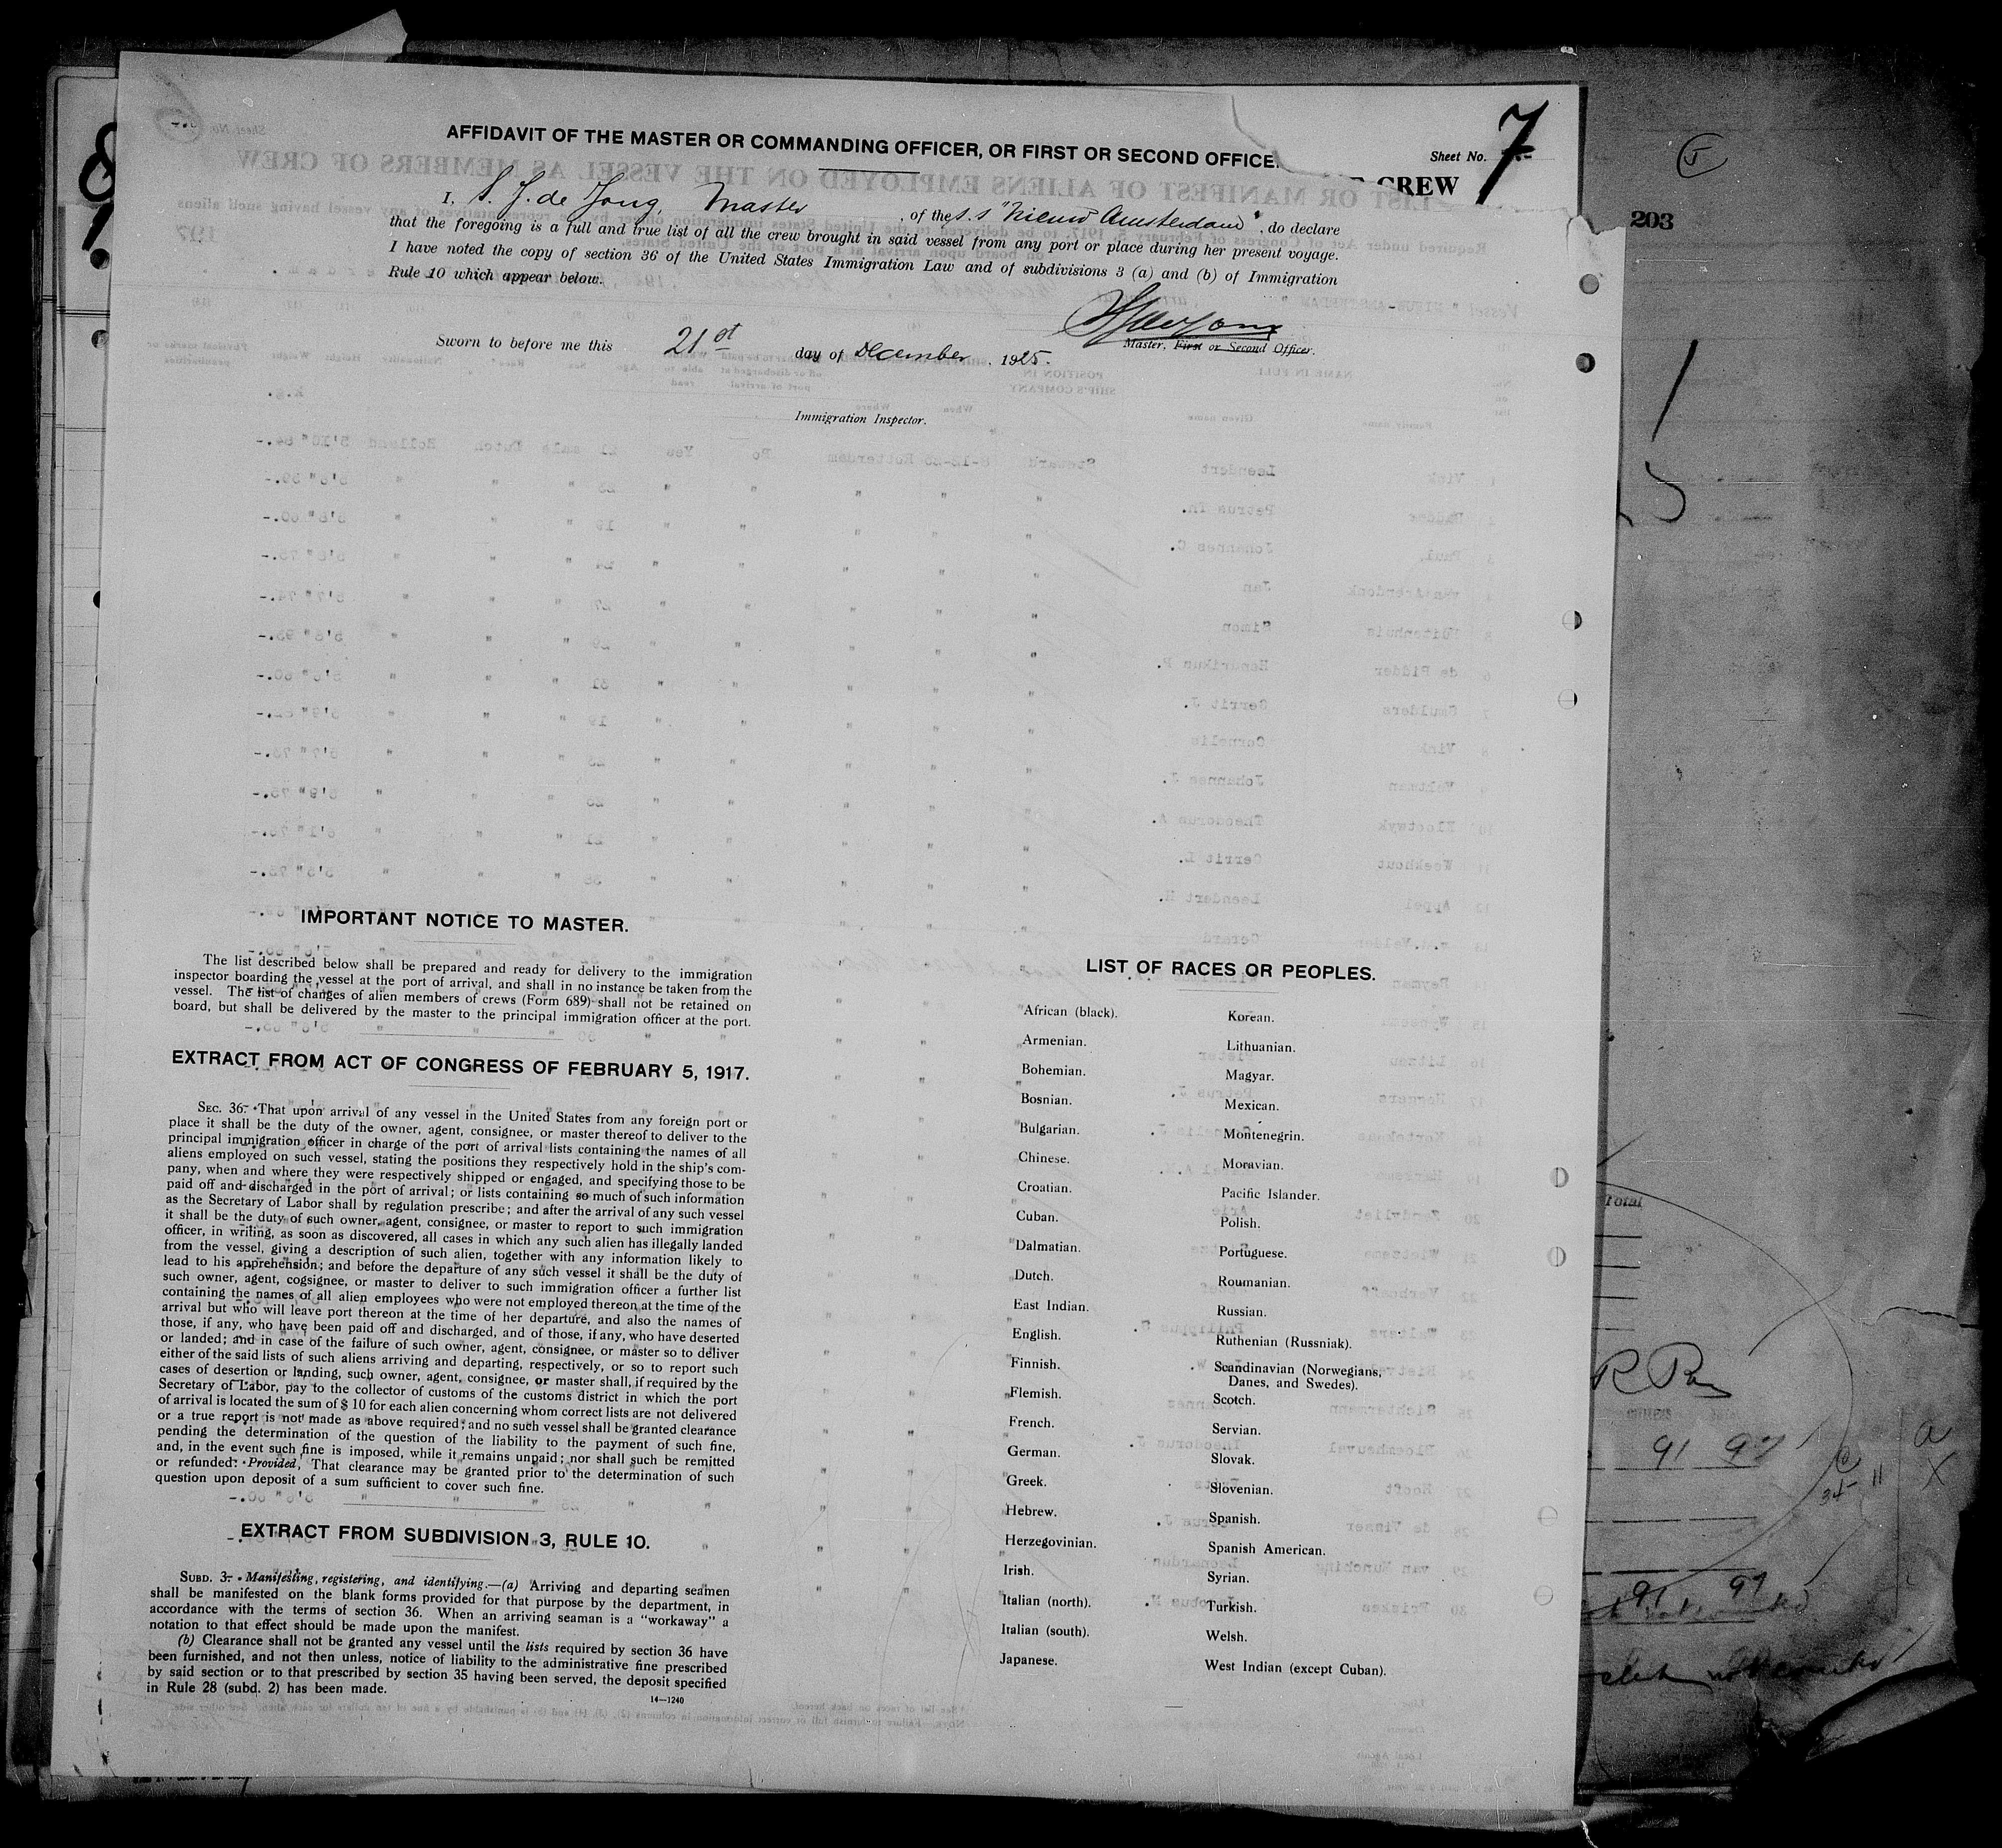 AFFIDAVIT OF THE MASTER OR COMMANDING OFFICER, OR FIRST OR SECOND OFFICE
Sheet No. 7
CREW
I, S. J. de Jong, Master, of the s.s "Nieuw Amsterdam", do declare
that the foregoing is a full and true list of all the crew brought in said vessel from any port or place during her present voyage.
I have noted the copy of section 36 of the United States Immigration Law and of subdivisions 3 (a) and (b) of Immigration
Rule 10 which appear below.
Master, First or Second Officer.
Sworn to before me this 21st day of December, 1925.
Immigration Inspector.
IMPORTANT NOTICE TO MASTER.
The list described below shall be prepared and ready for delivery to the immigration
inspector boarding the vessel at the port of arrival, and shall in no instance be taken from the
vessel. The list of changes of alien members of crews (Form 689) shall not be retained on
board, but shall be delivered by the master to the principal immigration officer at the port.
EXTRACT FROM ACT OF CONGRESS OF FEBRUARY 5, 1917.
SEC. 36. That upon arrival of any vessel in the United States from any foreign port or
place it shall be the duty of the owner, agent, consignee, or master thereof to deliver to the
principal immigration officer in charge of the port of arrival lists containing the names of all
aliens employed on such vessel, stating the positions they respectively hold in the ship's com-
pany, when and where they were respectively shipped or engaged, and specifying those to be
paid off and discharged in the port of arrival; or lists containing so much of such information
as the Secretary of Labor shall by regulation prescribe; and after the arrival of any such vessel
it shall be the duty of such owner, agent, consignee, or master to report to such immigration
officer, in writing, as soon as discovered, all cases in which any such alien has illegally landed
from the vessel, giving a description of such alien, together with any information likely to
lead to his apprehension; and before the departure of any such vessel it shall be the duty of
such owner, agent, cogsignee, or master to deliver to such immigration officer a further list
containing the names of all alien employees who were not employed thereon at the time of the
arrival but who will leave port thereon at the time of her departure, and also the names of
those, if any, who have been paid off and discharged, and of those, if any, who have deserted
or landed; and in case of the failure of such owner, agent, consignee, or master so to deliver
either of the said lists of such aliens arriving and departing, respectively, or so to report such
cases of desertion or landing, such owner, agent, consignee, or master shall, if required by the
Secretary of Labor, pay to the collector of customs of the customs district in which the port
of arrival is located the sum of $ 10 for each alien concerning whom correct lists are not delivered
or a true report is not made as above required; and no such vessel shall be granted clearance
pending the determination of the question of the liability to the payment of such fine,
and, in the event such fine is imposed, while it remains unpaid; nor shall such be remitted
or refunded: Provided, That clearance may be granted prior to the determination of such
question upon deposit of a sum sufficient to cover such fine.
EXTRACT FROM SUBDIVISION 3, RULE 10.
SUBD. 3. Manifesting, registering, and identifying.—(a) Arriving and departing seamen
shall be manifested on the blank forms provided for that purpose by the department, in
accordance with the terms of section 36. When an arriving seaman is a "workaway" a
notation to that effect should be made upon the manifest.
(b) Clearance shall not be granted any vessel until the lists required by section 36 have
been furnished, and not then unless, notice of liability to the administrative fine prescribed
by said section or to that prescribed by section 35 having been served, the deposit specified
in Rule 28 (subd. 2) has been made.
14—1240
LIST OF RACES OR PEOPLES.
African (black).
Armenian.
Bohemian.
Bosnian.
Bulgarian.
Chinese.
Croatian.
Cuban.
Dalmatian.
Dutch.
East Indian.
English.
Finnish.
Flemish.
French.
German.
Greek.
Hebrew.
Herzegovinian.
Irish.
Italian (north).
Italian (south).
Japanese.
Korean.
Lithuanian.
Magyar.
Mexican.
Montenegrin.
Moravian.
Pacific Islander.
Polish.
Portuguese.
Roumanian.
Russian.
Ruthenian (Russniak).
Scandinavian (Norwegians,
Danes, and Swedes).
Scotch.
Servian.
Slovak.
Slovenian.
Spanish.
Spanish American.
Syrian.
Turkish.
Welsh.
West Indian (except Cuban).
203
Total
91 97
91 97